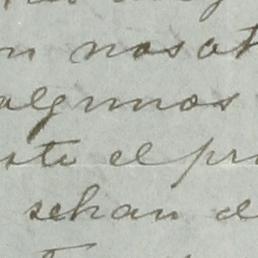 n nosot
algunos
ste el pr
sehan e